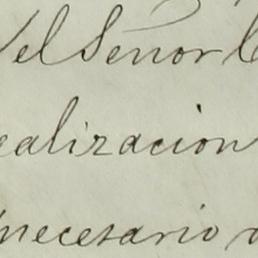 del Señor
ealizacion
necesario